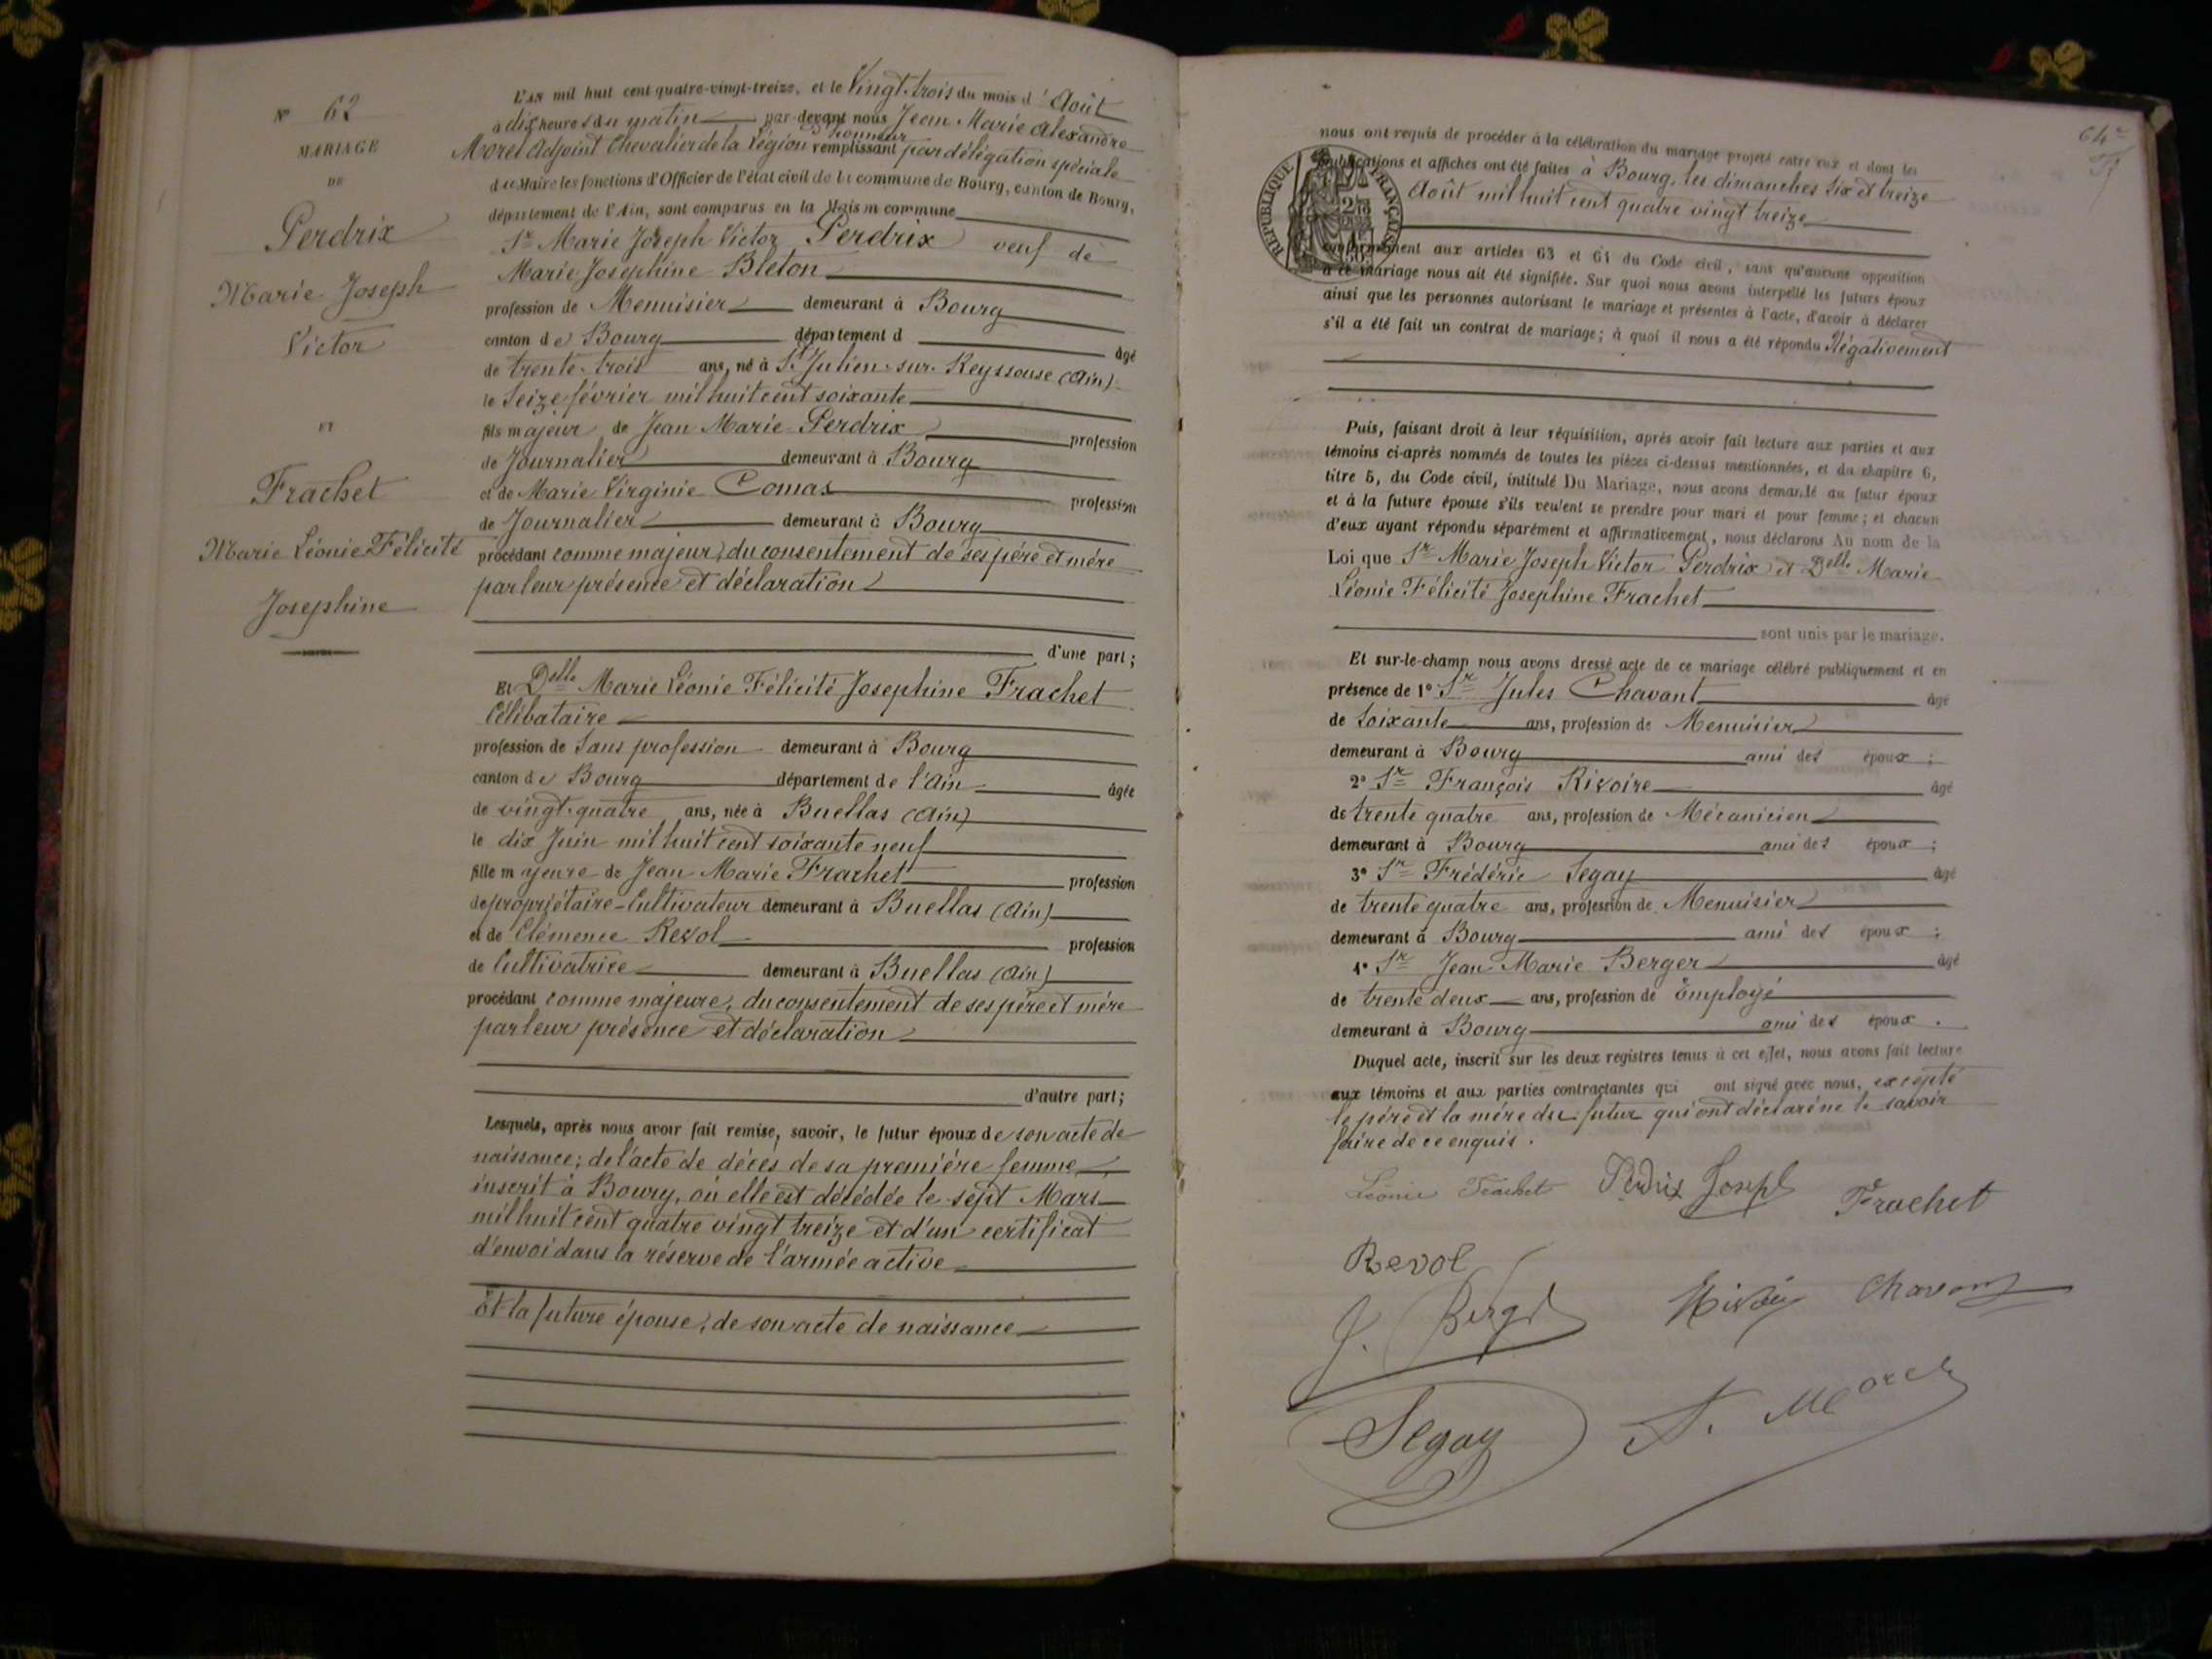 N° 62
MARIAGE
DE
Perdrix
Marie Joseph
Victor
ET
Frachet
Marie Léonie Félicité
Josephine
L'AN mil huit cent quatre-vingt-treize, et le Vingt-trois du mois d'Août
à dix heures du matin par-devant nous Jean Marie Alexandre
Morel Adjoint Chevalier de la Légion d'honneur remplissant par délégation spéciale
du Maire les fonctions d'Officier de l'état civil de la commune de Bourg, canton de Bourg,
département de l'Ain, sont comparus en la Maison commune
Sr Marie Joseph Victor Perdrix veuf de
Marie Josephine Bleton
profession de Menuisier demeurant à Bourg
canton de Bourg département d âgé
de trente-trois ans, né à St Julien-sur-Reyssouse (Ain)
le Seize février mil huit cent soixante
fils majeur de Jean Marie Perdrix profession
de Journalier demeurant à Bourg
et de Marie Virginie Comas profession
de Journalier demeurant à Bourg
procédant comme majeur, du consentement de ses père et mère
par leur présence et déclaration
d'une part;
Et Delle Marie Léonie Félicité Josephine Frachet
Célibataire
profession de Sans profession demeurant à Bourg
canton de Bourg département de l'Ain âgée
de vingt-quatre ans, née à Buellas (Ain)
le dix Juin mil huit cent soixante neuf
fille majeure de Jean Marie Frachet profession
de propriétaire-Cultivateur demeurant à Buellas (Ain)
et de Clémence Revol profession
de Cultivatrice demeurant à Buellas (Ain)
procédant comme majeure, du consentement de ses père et mère
par leur présence et déclaration
d'autre part;
Lesquels, après nous avoir fait remise, savoir, le futur époux de son acte de
naissance; de l'acte de décès de sa première femme
inscrit à Bourg, où elle est décédée le sept Mars
mil huit cent quatre vingt treize et d'un certificat
d'envoi dans la réserve de l'armée active
Et la future épouse, de son acte de naissance
64e
RÉPUBLIQUE FRANÇAISE
nous ont requis de procéder à la célébration du mariage projeté entre eux et dont les
publications et affiches ont été faites à Bourg, les dimanches six et treize
Août mil huit cent quatre vingt treize
conformément aux articles 63 et 64 du Code civil, sans qu'aucune opposition
à ce mariage nous ait été signifiée. Sur quoi nous avons interpellé les futurs époux
ainsi que les personnes autorisant le mariage et présentes à l'acte, d'avoir à déclarer
s'il a été fait un contrat de mariage; à quoi il nous a été répondu Négativement
Puis, faisant droit à leur réquisition, après avoir fait lecture aux parties et aux
témoins ci-après nommés de toutes les pièces ci-dessus mentionnées, et du chapitre 6,
titre 5, du Code civil, intitulé Du Mariage, nous avons demandé au futur époux
et à la future épouse s'ils veulent se prendre pour mari et pour femme; et chacun
d'eux ayant répondu séparément et affirmativement, nous déclarons Au nom de la
Loi que Sr Marie Joseph Victor Perdrix et Delle Marie
Léonie Félicité Josephine Frachet
sont unis par le mariage.
Et sur-le-champ nous avons dressé acte de ce mariage célébré publiquement et en
présence de 1° Sr Jules Chavant âgé
de soixante ans, profession de Menuisier
demeurant à Bourg ami des époux;
2° Sr François Rivoire âgé
de trente quatre ans, profession de Mécanicien
demeurant à Bourg ami des époux;
3° Sr Frédéric Segay âgé
de trente quatre ans, profession de Menuisier
demeurant à Bourg ami des époux;
4° Sr Jean Marie Berger âgé
de trente deux ans, profession de Employé
demeurant à Bourg ami des époux.
Duquel acte, inscrit sur les deux registres tenus à cet effet, nous avons fait lecture
aux témoins et aux parties contractantes qui ont signé avec nous, excepté
le père et la mère du futur qui ont déclaré ne le savoir
faire de ce enquis.
Léonie Frachet Perdrix Joseph Frachet
Revol
J. Berger Rivoire Chavant
Segay A. Morel